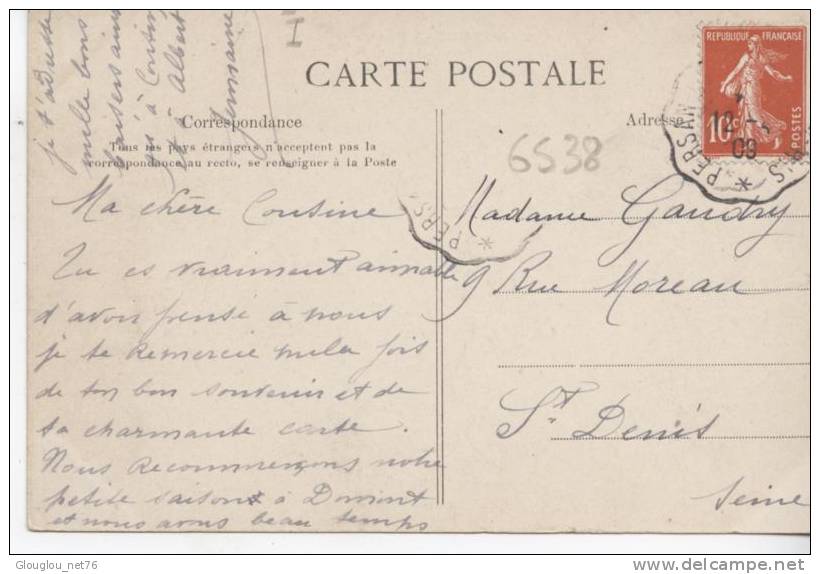 CARTE POSTALE
Correspondance
Tous les pays étrangers n'acceptent pas la
correspondance au recto, se renseigner à la Poste
Adresse
REPUBLIQUE FRANÇAISE
10c
POSTES
PERSAN
12
09
6538
Ma chère Cousine
Tu es vraiment aimable
d'avoir pensé à nous
je te remercie mille fois
de ton bon souvenir et de
ta charmante carte.
Nous recommençons notre
petite saison à Domont
et nous avons beau temps
je t'adresse
mille bons
baisers ainsi
à Cousin
et à Albert
Germaine
Madame Gaudry
9 Rue Moreau
St Denis
Seine
PERS
Glouglou_net76